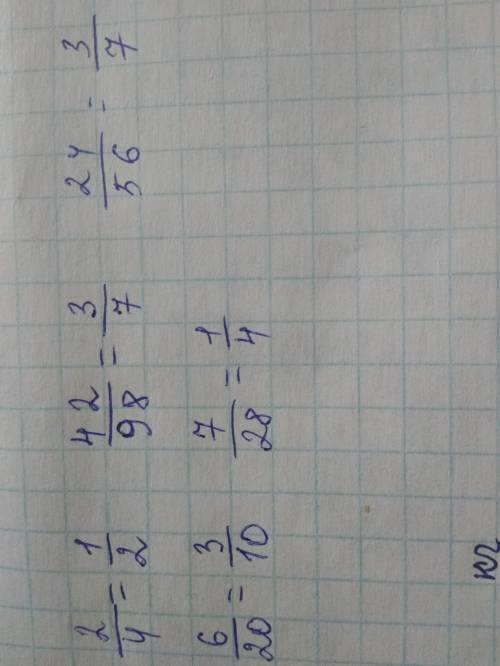 2/4 = 1/2 42/98 = 3/7 24/56 = 3/7
6/20 = 3/10 7/28 = 1/4
кг